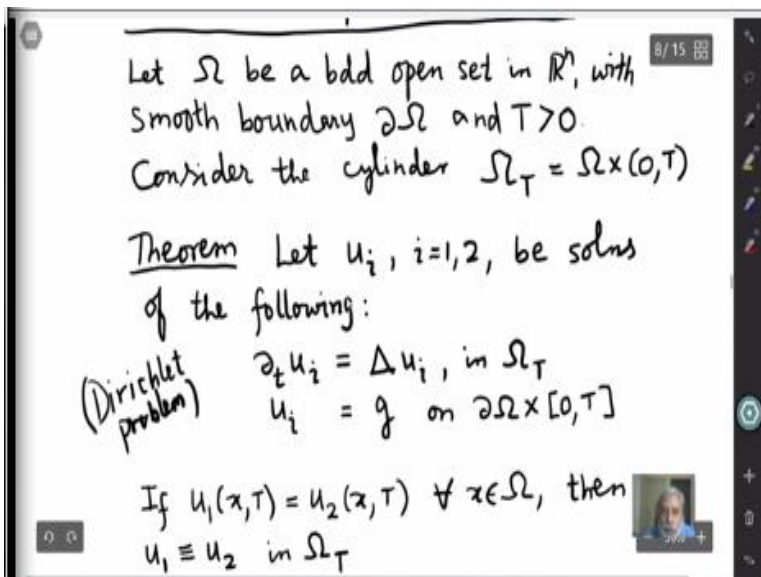 8/15
Let Ω be a bdd open set in ℝⁿ, with
smooth boundary ∂Ω and T>0.
Consider the cylinder Ω_T = Ω×(0,T)
Theorem Let u_i, i=1,2, be solns
of the following:
(Dirichlet problem)
∂_t u_i = Δu_i, in Ω_T
u_i = g on ∂Ω×[0,T]
If u₁(x,T) = u₂(x,T) ∀ x∈Ω, then
u₁ ≡ u₂ in Ω_T